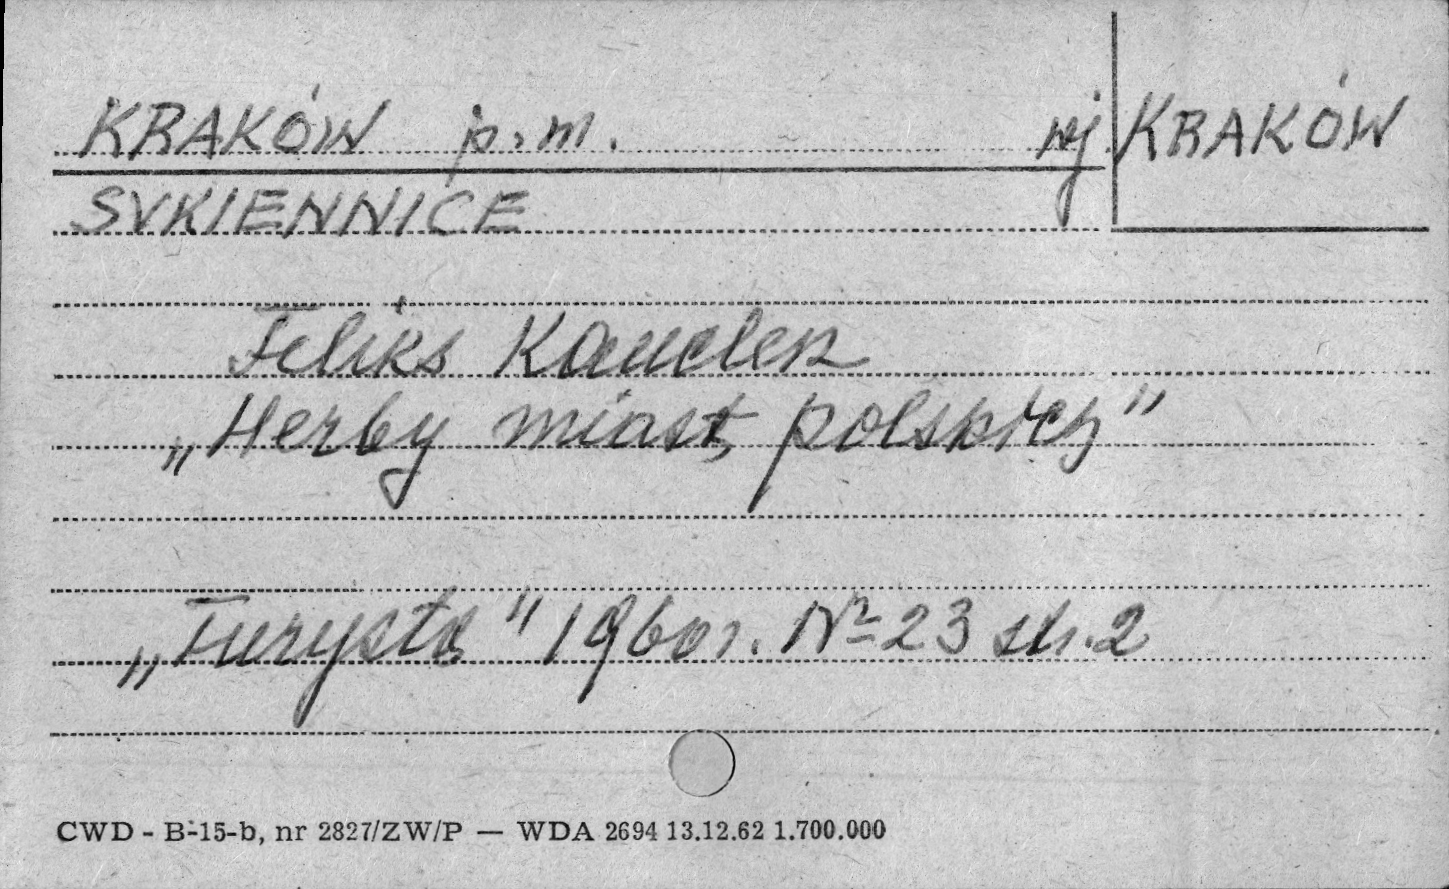 KRAKÓW p.m. wj. KRAKÓW
SUKIENNICE
Feliks Kanclerz
„Herby miast polskich”
„Turysta” 1960 r. Nr 23 str. 2
CWD - B-15-b, nr 2827/ZW/P — WDA 2694 13.12.62 1.700.000